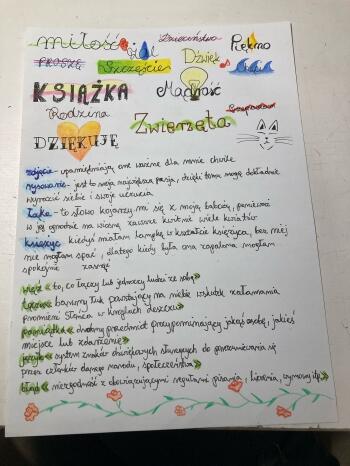 miłość
Dzieciństwo
Piękno
PROSZĘ
Szczęście
Dźwięk
KSIĄŻKA
Mądrość
Rodzina
Zwierzęta
DZIĘKUJĘ
zdjęcie - upamiętniają one ważne dla mnie chwile
rysowanie - jest to moja największa pasja, dzięki temu mogę dokładnie
wyrazić siebie i swoje uczucia
łąka - to słowo kojarzy mi się z moją babcią, ponieważ
w jej ogrodzie na wiosnę zawsze kwitnie wiele kwiatów
księżyc kiedyś miałam lampkę w kształcie księżyca, bez niej
nie mogłam spać, dlatego kiedy była ona zapalona mogłam
spokojnie zasnąć
więź - to, co łączy lub jednoczy ludzi ze sobą
tęcza - barwny łuk powstający na niebie wskutek załamania
promieni słońca w kroplach deszczu
pamiątka - drobny przedmiot przypominający jakąś osobę, jakieś
miejsce lub zdarzenie
język - system znaków dźwiękowych służących do porozumiewania się
przez członków danego narodu, społeczeństwa
błąd - niezgodność z obowiązującymi regułami pisania, liczenia, wymowy itp.